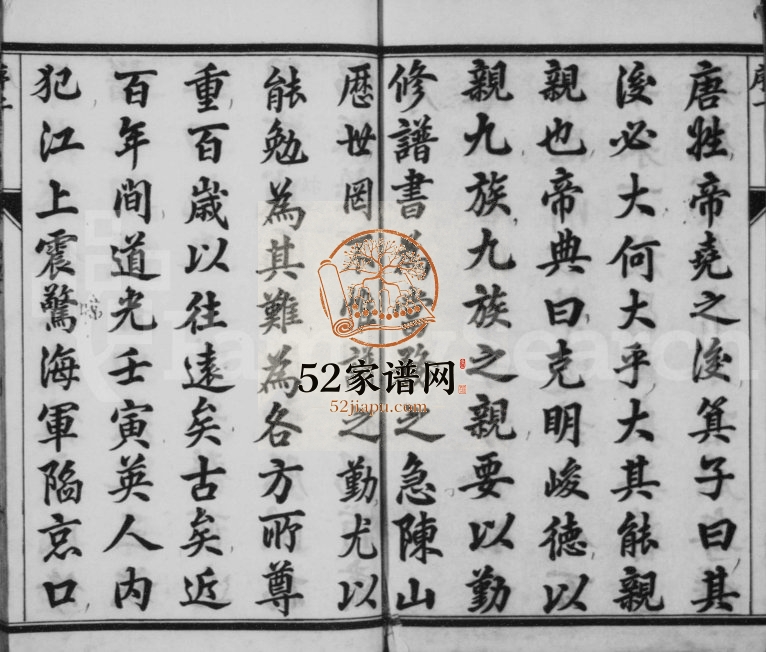 序一
唐甡帝堯之後箕子曰其
後必大何大乎大其能親
親也帝典曰克明峻德以
親九族九族之親要以勤
修譜書為當務之急陳山
歷世罔不惟譜之勤尤以
能勉為其難為各方所尊
重百歲以往遠矣古矣近
百年間道光壬寅英人內
犯江上震驚海軍陷京口
序二
52家谱网
52jiapu.com
FamilySearch